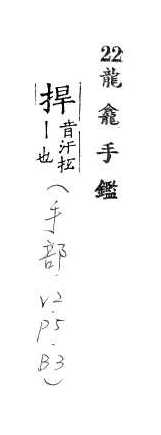 22龍龕手鑑
捍昔汗扞
｜也
（手部.V2.P5.B3）